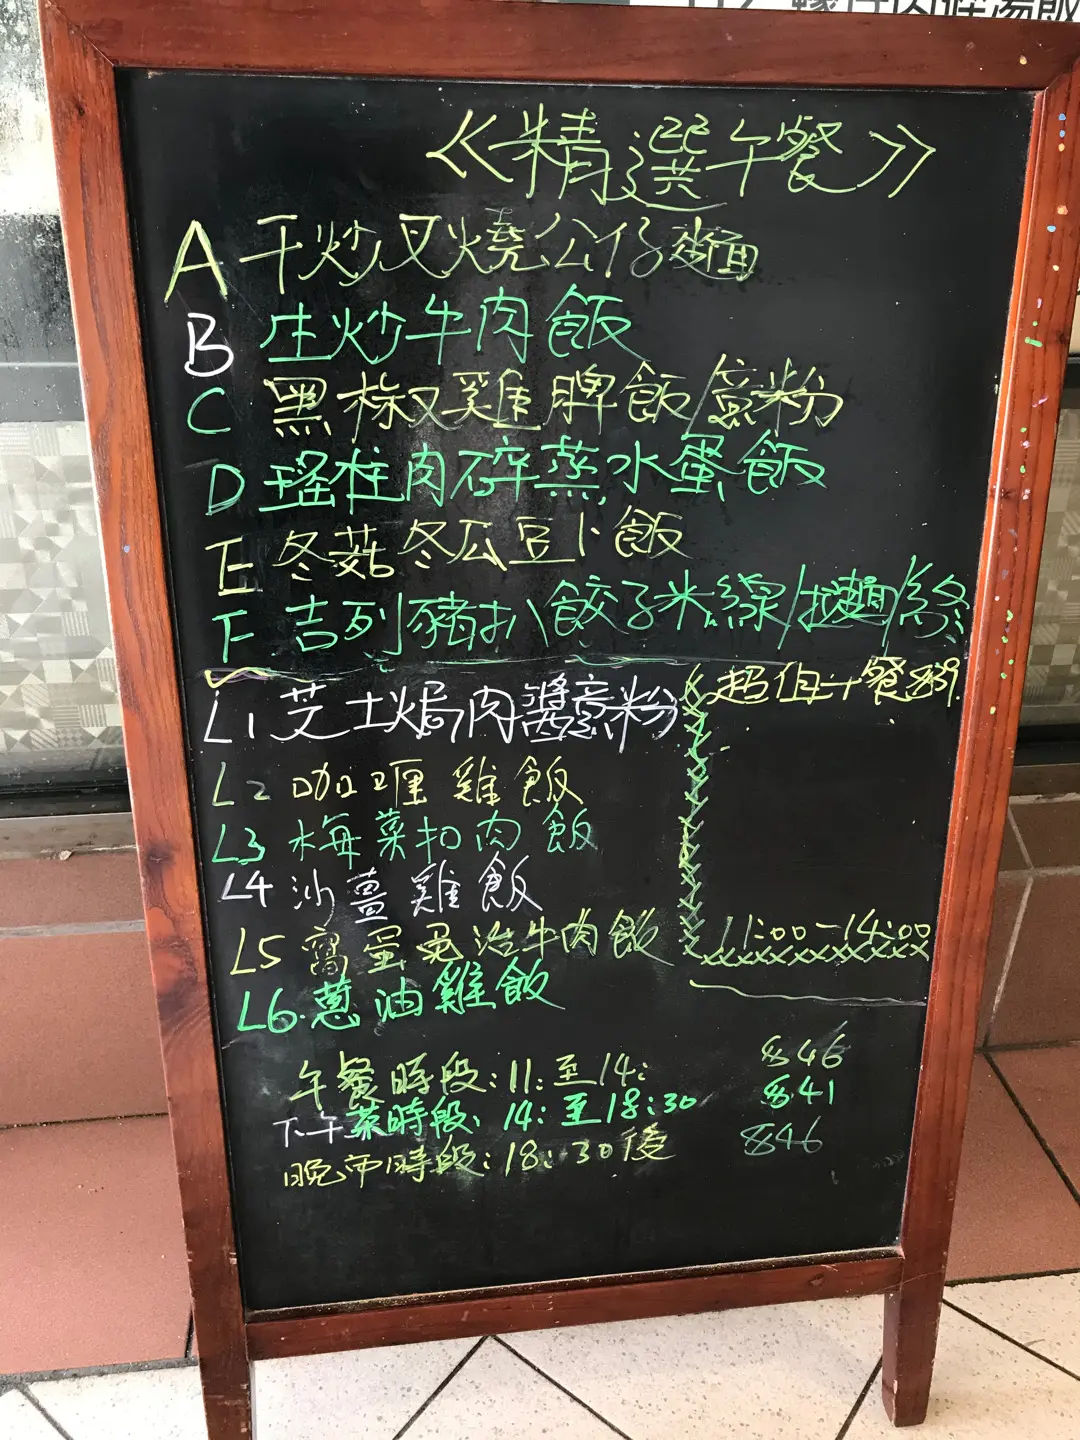 《精選午餐》
A 干炒叉燒公仔麵
B 生炒牛肉飯
C 黑椒雞脾飯/意粉
D 瑤柱肉碎蒸水蛋飯
E 冬菇冬瓜豆卜飯
F 吉列豬扒餃子米線/
L1 芝士焗肉醬意粉
L2 咖喱雞飯
L3 梅菜扣肉飯
L4 沙薑雞飯
L5 窩蛋免治牛肉飯
L6. 蔥油雞飯
超值
11:00-14:00
午餐時段:11:至14: $46
下午茶時段:14:至18:30 $41
晚市時段:18:30後 $46